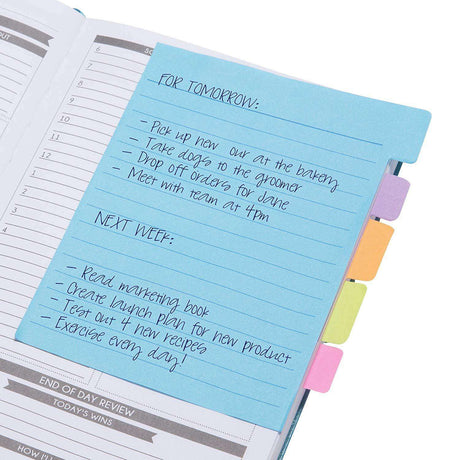 OUT
SC
6
7
8
9
10
11
12
1
2
3
4
FOR TOMORROW:
- Pick up new our at the bakery
- Take dogs to the groomer
- Drop off orders for Jane
- Meet with team at 4pm
NEXT WEEK:
- Read marketing book
- Create launch plan for new product
- Test out 4 new recipes
- Exercise every day!
END OF DAY REVIEW
TODAY'S WINS
HOW I'LL